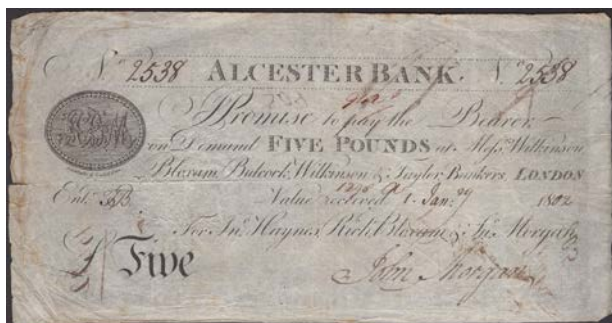 No. 2538 ALCESTER BANK. No. 2538
I Promise to pay the Bearer
on Demand FIVE POUNDS at Messrs. Wilkinson
Bloxam, Bulcock, Wilkinson & Taylor, Bankers, LONDON
Entd. Value received 1 Jany 1802
For Jno. Haynes, Richd. Bloxam & Jno. Morgan
£ Five
John Morgan